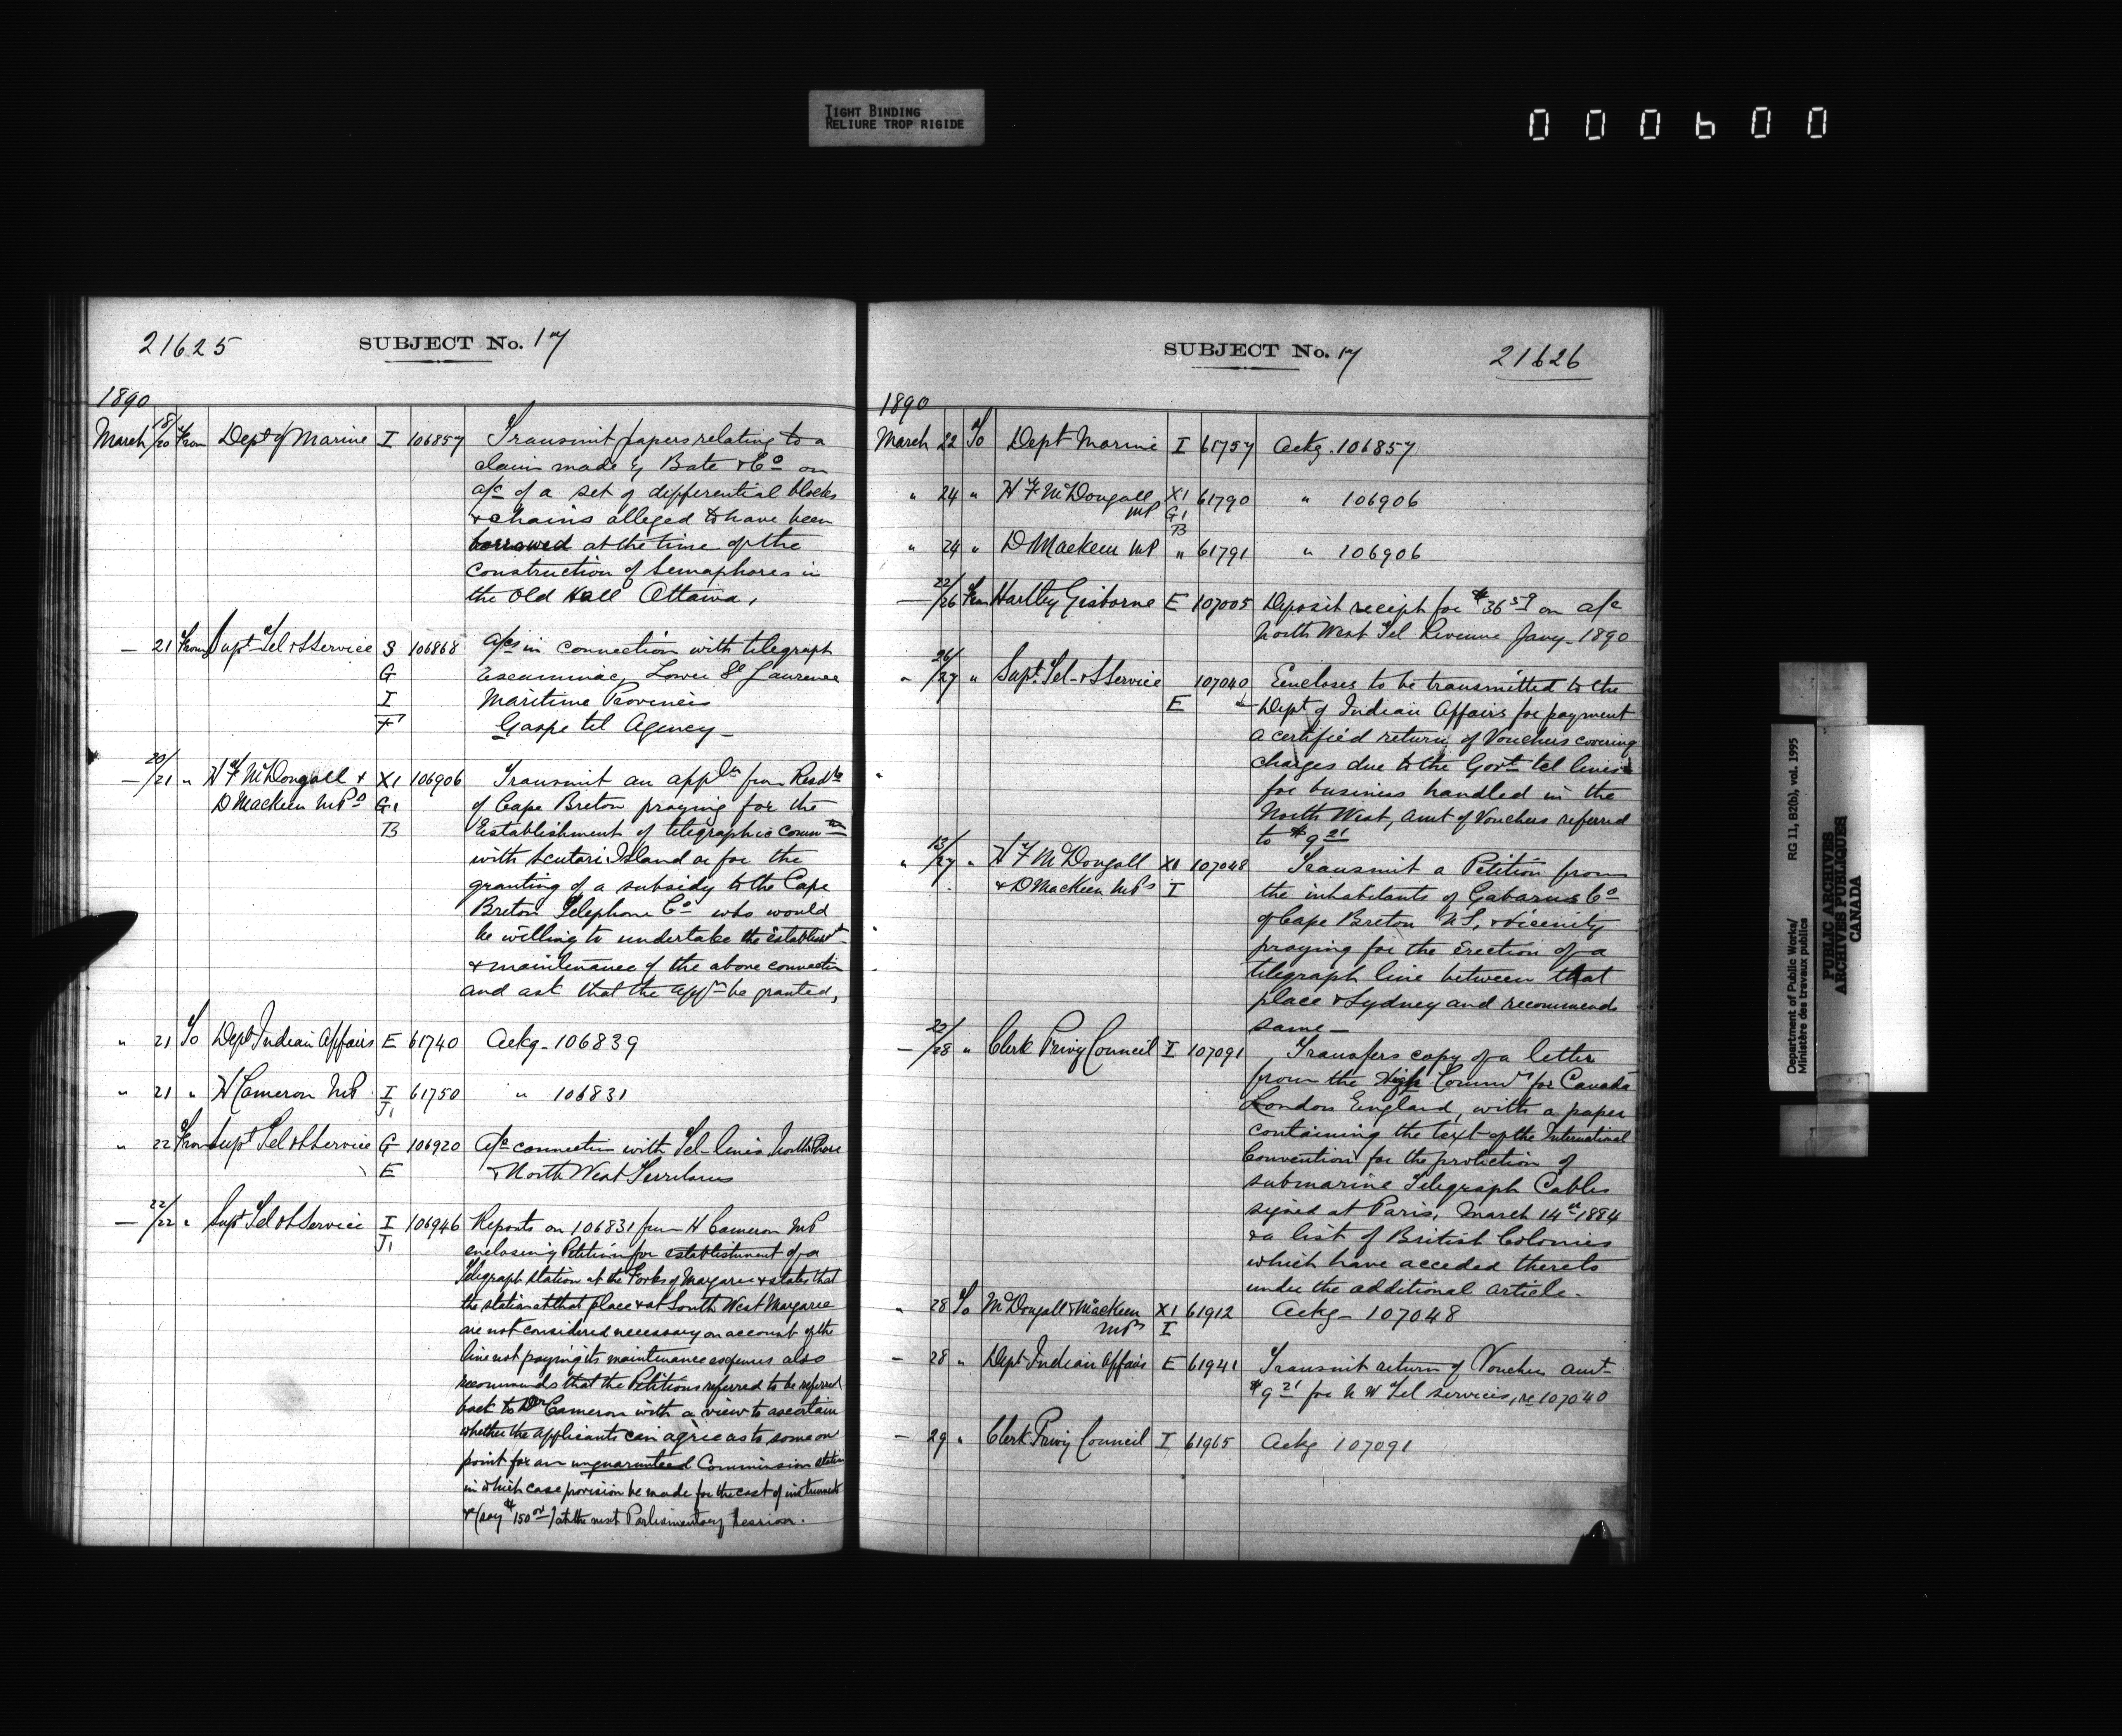 TIGHT BINDING
RELIURE TROP RIGIDE
000600
21625 SUBJECT No. 17
1890
March 18/20 From Dept of Marine I 106857 Transmit papers relating to a
claim made by Bate & Co on
a/c of a set of differential blocks
& chains alleged to have been
borrowed at the time of the
construction of Semaphores in
the Old Hall Ottawa,
— 21 From Supt Tel & S Service S 106868 a/cs in connection with telegraph
G Escuminac, Lower St Laurence
I Maritime Provinces
F Gaspe tel Agency —
— 20/21 " H F McDougall & X1 106906 Transmit an appln from Resdts
D MacKeen MPs G1 of Cape Breton praying for the
B Establishment of telegraphic commn
with Scutari Island or for the
granting of a subsidy to the Cape
Breton Telephone Co who would
be willing to undertake the establismt
& maintenance of the above connection
and ask that the appn be granted,
" 21 To Dept Indian Affairs E 61740 Ackg - 106839
" 21 " H Cameron MP I 61750 " 106831
J1
" 22 From Supt Tel & S Service G 106920 a/c connection with Tel-lines North Shore
E & North West Territories
— 22/22 " Supt Tel & S Service I 106946 Reports on 106831 from H Cameron MP
J1 enclosing Petition for establishment of a
Telegraph station at the Forks of Margaree & states that
the station at that place & at South West Margaree
are not considered necessary on account of the
line not paying its maintenance expenses also
recommends that the Petitions referred to be referred
back to Dr Cameron with a view to ascertain
whether the applicants can agree as to some on
point for an unguaranteed Commission station
in which case provision be made for the cost of instruments
& (say $150 00) at the next Parliamentary Session.
SUBJECT No. 17 21626
1890
March 22 To Dept Marine I 61757 Ackg. 106857
" 24 " H F McDougall X1 61790 " 106906
MP G1
B
" 24 " D MacKeen MP " 61791 " 106906
— 22/26 From Hartley Gisborne E 107005 Deposit receipt for $36 59 on a/c
North West Tel Revenue Jany - 1890
" 26/27 " Supt. Tel - & S Service 107040 Eencloses to be transmitted to the
E Dept of Indian Affairs for payment
a certified return of Vouchers covering
charges due to the Govt tel lines
for business handled in the
North West, amt of Vouchers referred
to $9 21
" 13/27 " H F McDougall X1 107048 Transmit a Petition from
& D MacKeen MPs I the inhabitants of Gabarus Co
of Cape Breton N.S. & vicinity
praying for the erection of a
telegraph line between that
place & Sydney and recommends
same —
— 22/28 " Clerk Privy Council I 107091 Transfers copy of a letter
from the High Commr for Canada
London England, with a paper
containing the text of the International
Convention for the protection of
submarine Telegraph Cables
signed at Paris, March 14th 1884
& a list of British Colonies
which have acceded thereto
under the additional article -
" 28 To McDougall & MacKeen X1 61912 Ackg - 107048
MPs I
— 28 " Dept Indian Affairs E 61941 Transmit return of Voucher amt
$9 21 for N W Tel services, re 107040
— 29 " Clerk Privy Council I 61965 Ackg 107091
Department of Public Works/
Ministère des travaux publics
RG 11, B2(b), vol. 1995
PUBLIC ARCHIVES
ARCHIVES PUBLIQUES
CANADA